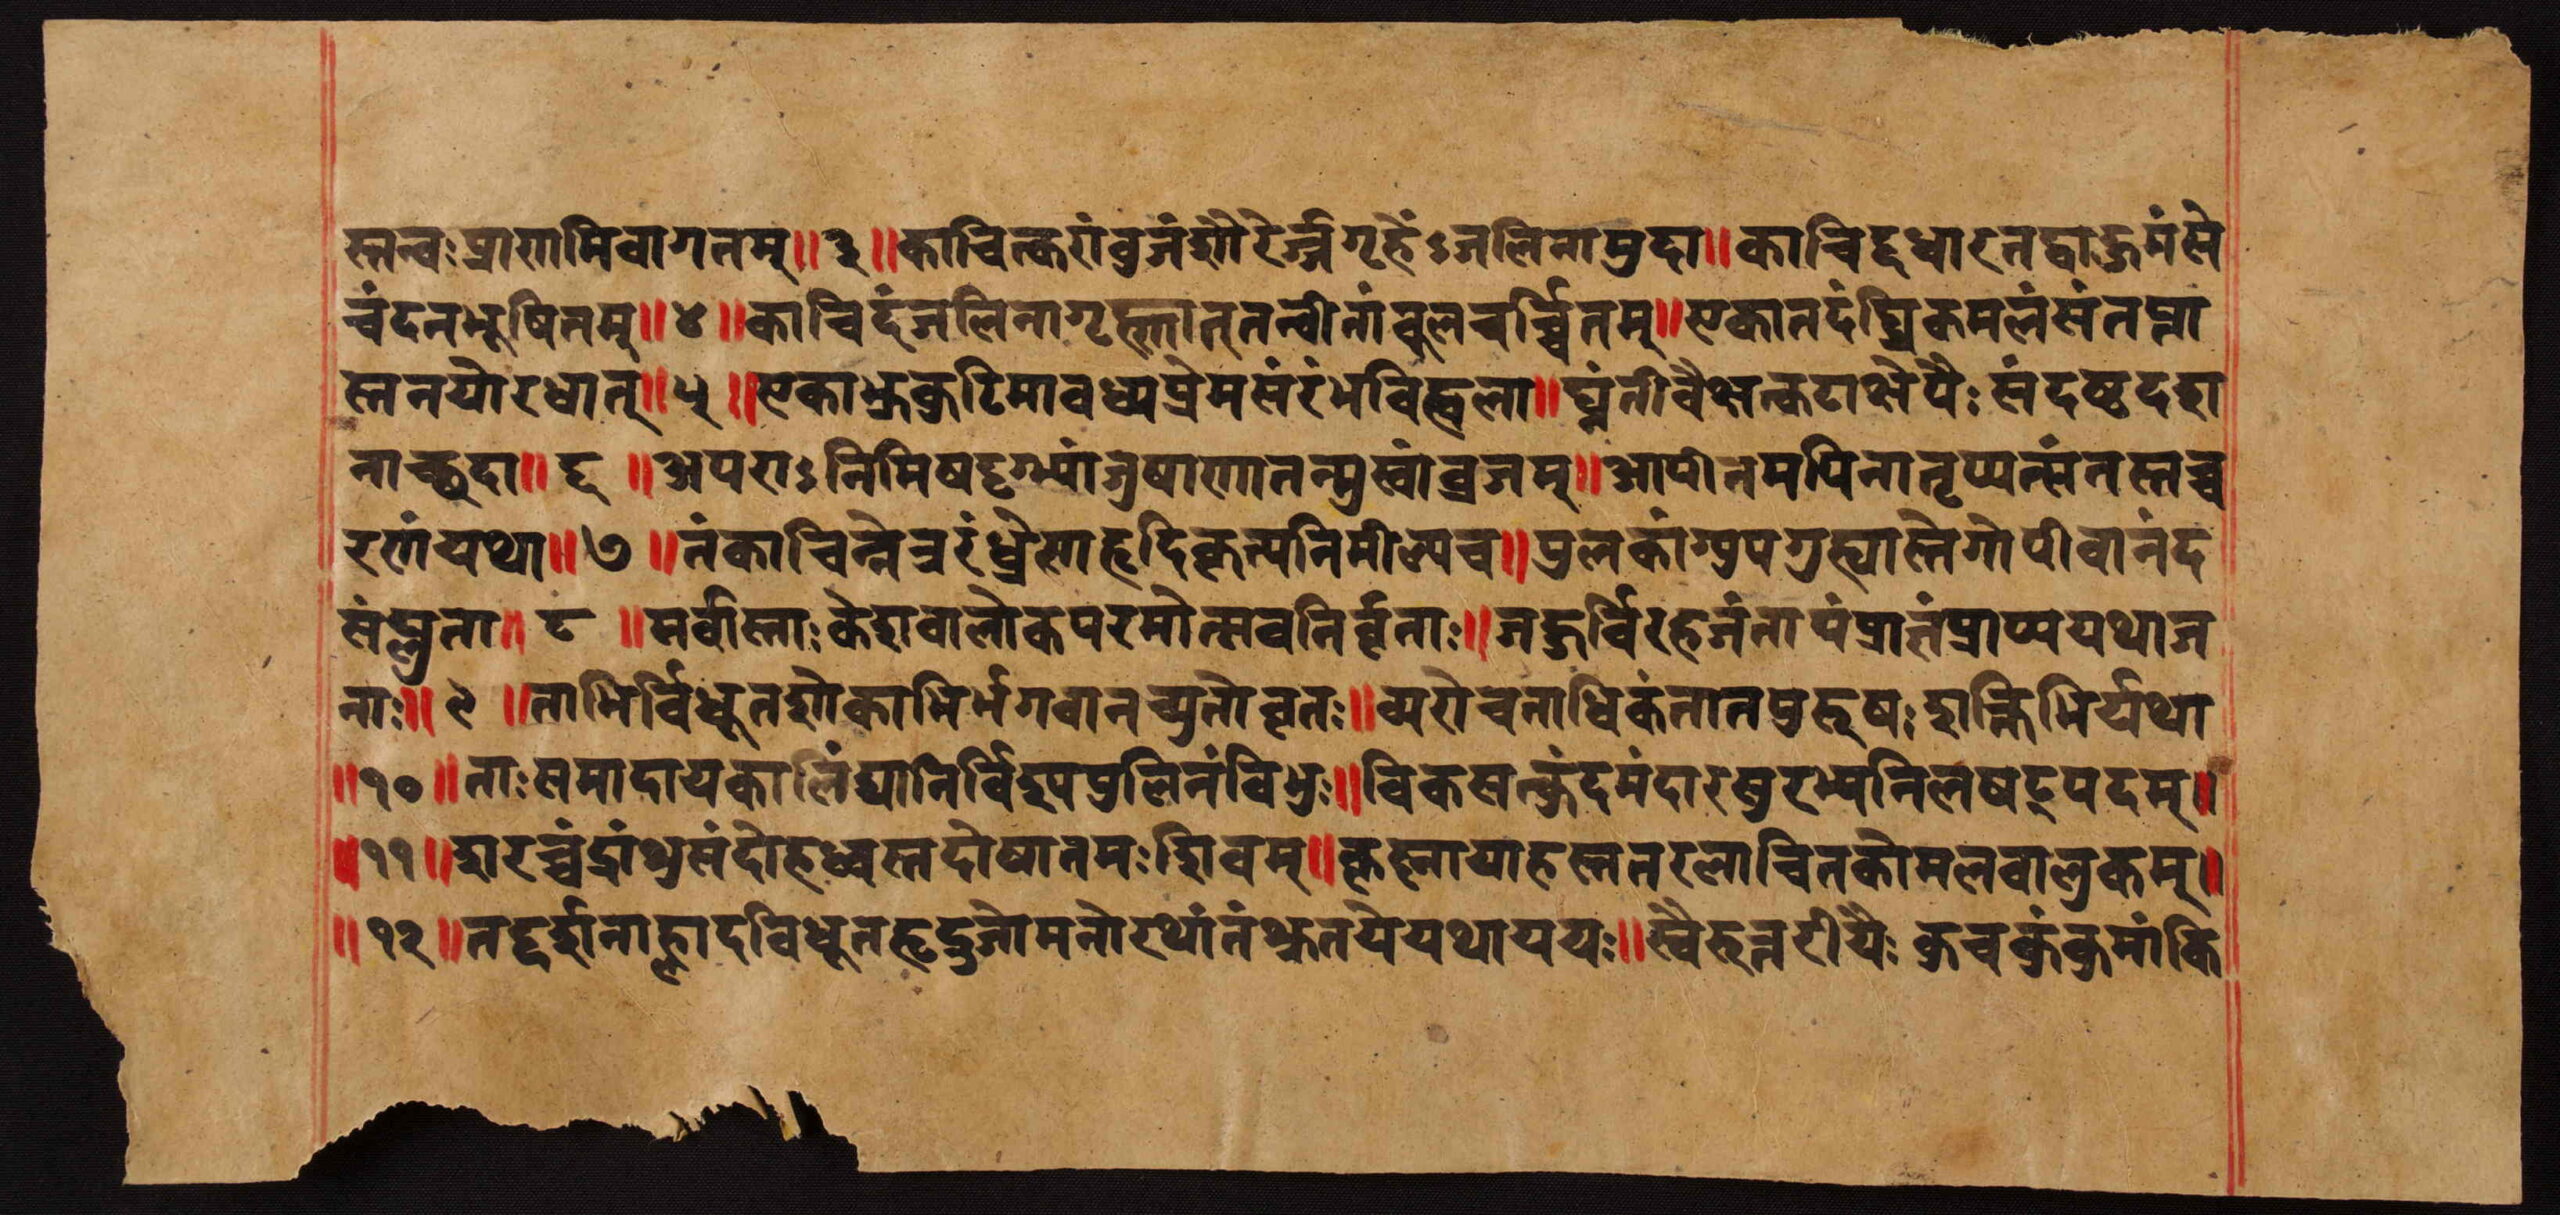 स्तन्वः प्राणमिवागतम् ॥ ३ ॥ काचित्करांवुजं शौरेर्ज्जगृहेंऽजलिना मुदा ॥ काचिद्दधार तद्वाहुमंसे
चंदनभूषितम् ॥ ४ ॥ काचिदंजलिनागृह्णात् तन्वी तांवूलचर्च्चितम् ॥ एका तदंघ्रिकमलं संतप्ता
स्तनयोरधात् ॥ ५ ॥ एका भ्रुकुटिमावध्य प्रेमसंरंभविह्वला ॥ घ्नंतीवैक्षत्कटाक्षेपैः संदष्टदश
नाच्छदा ॥ ६ ॥ अपराऽनिमिषदृग्भ्यां जुषाणा तन्मुखांवुजम् ॥ आपीतमपि नातृप्यत्संतस्तच्च
रणं यथा ॥ ७ ॥ तं काचिन्नेत्ररंध्रेण हृदिकृत्य निमील्य च ॥ पुलकांग्युपगुह्यास्ते गोपीवानंद
संप्लुता ॥ ८ ॥ सर्वास्ताः केशवालोकपरमोत्सवनिर्वृताः ॥ जहुर्विरहजं तापं प्राज्ञं प्राप्य यथा ज
नाः ॥ ९ ॥ ताभिर्विधूतशोकाभिर्भगवानच्युतो वृतः ॥ व्यरोचताधिकं तात पुरुषः शक्तिभिर्यथा
॥ १० ॥ ताः समादाय कालिंद्या निर्विश्य पुलिनं विभुः ॥ विकसत्कुंदमंदारसुरभ्यनिलषट्पदम् ॥
॥ ११ ॥ शरच्चंद्रांशुसंदोहध्वस्तदोषातमः शिवम् ॥ कृष्णाया हस्ततरलाचितकोमलवालुकम् ॥
॥ १२ ॥ तद्दर्शनाह्लादविधूतहृद्रुजो मनोरथांतं श्रुतयो यथा ययुः ॥ स्वैरुत्तरीयैः कुचकुंकुमांकि